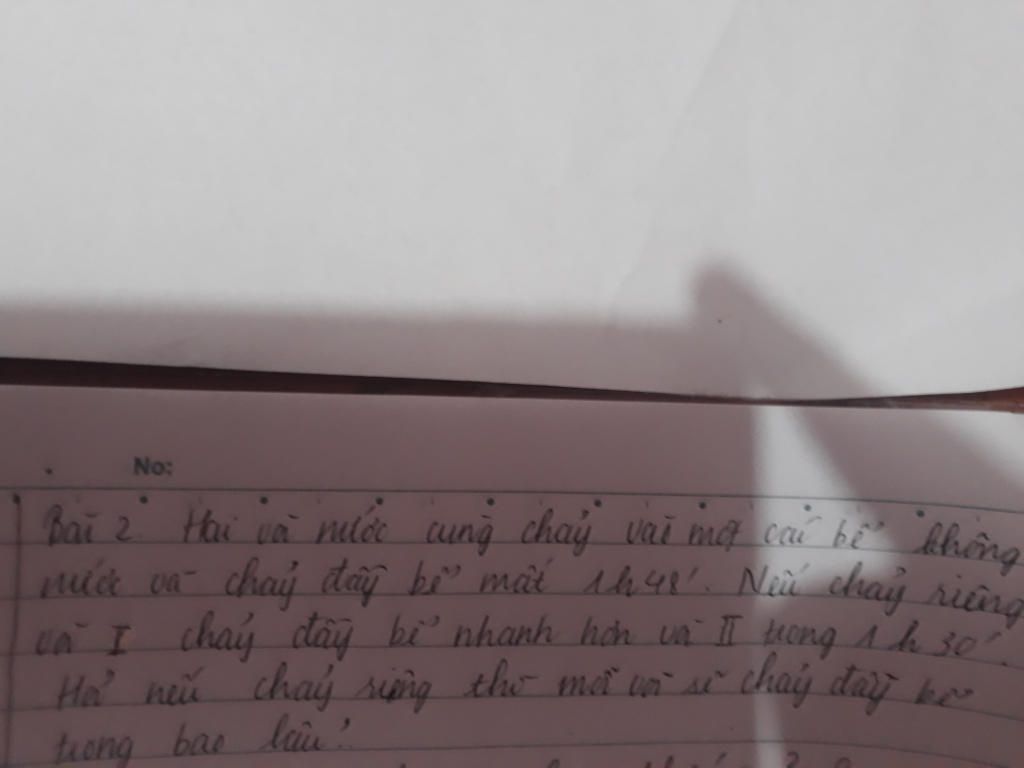 No:
Bài 2 Hai vòi nước cùng chảy vài một cái bể không
nước và chảy đầy bể mất 1h48'. Nếu chảy riêng
vòi I chảy đầy bể nhanh hơn vòi II trong 1h30'.
Hỏi nếu chảy riêng thì mỗi vòi sẽ chảy đầy bể
trong bao lâu?